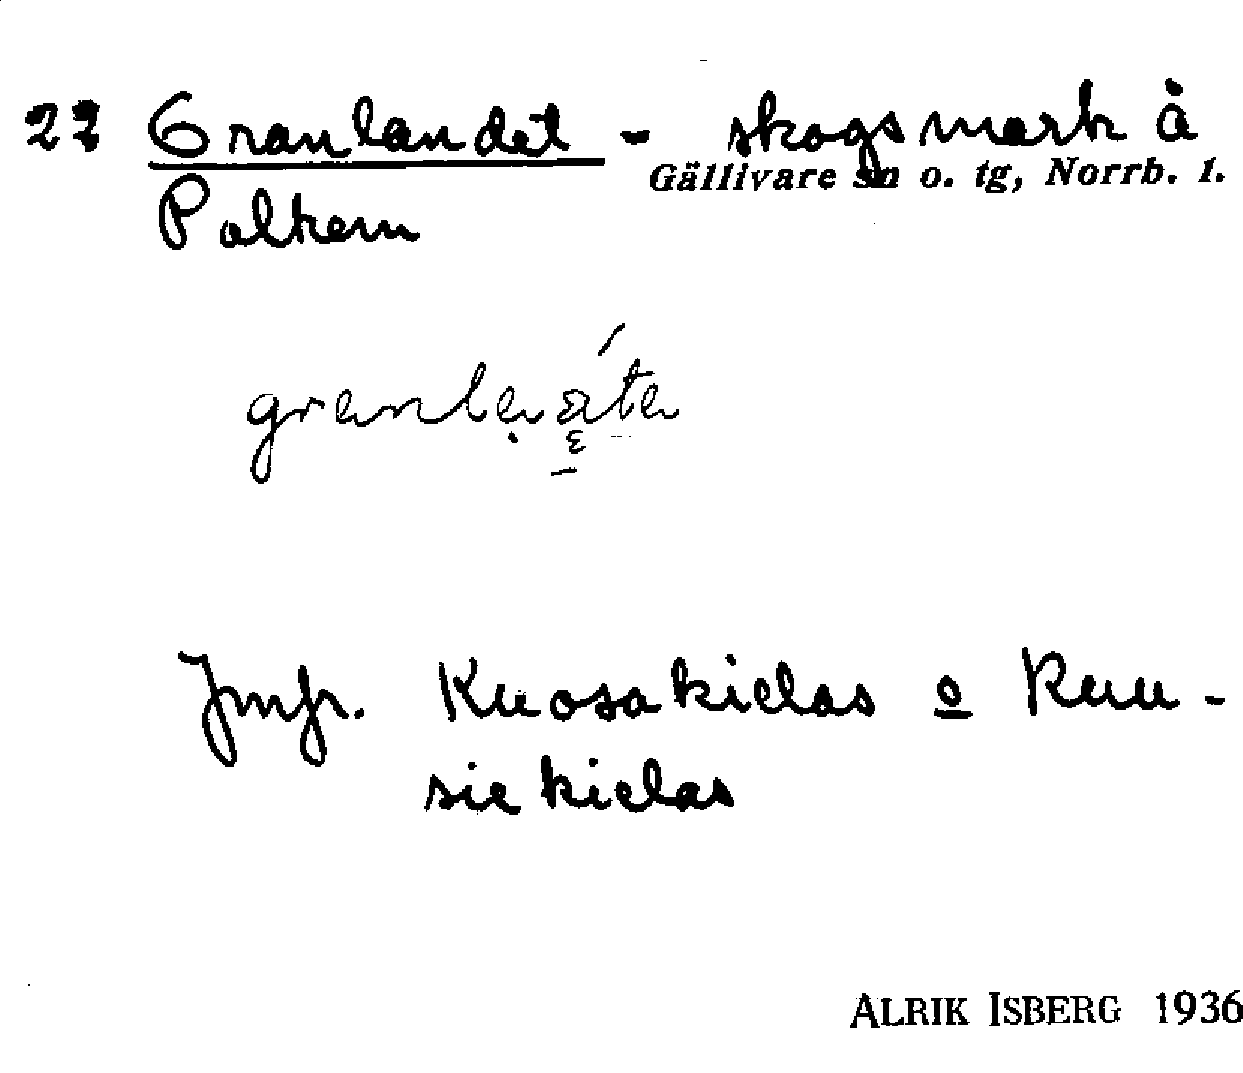 22 Granlandet - skogsmark å
Gällivare sn o. tg, Norrb. l.
Polkem
Jmfr. Kuosakielas o Kuu-
siekielas
ALRIK ISBERG 1936